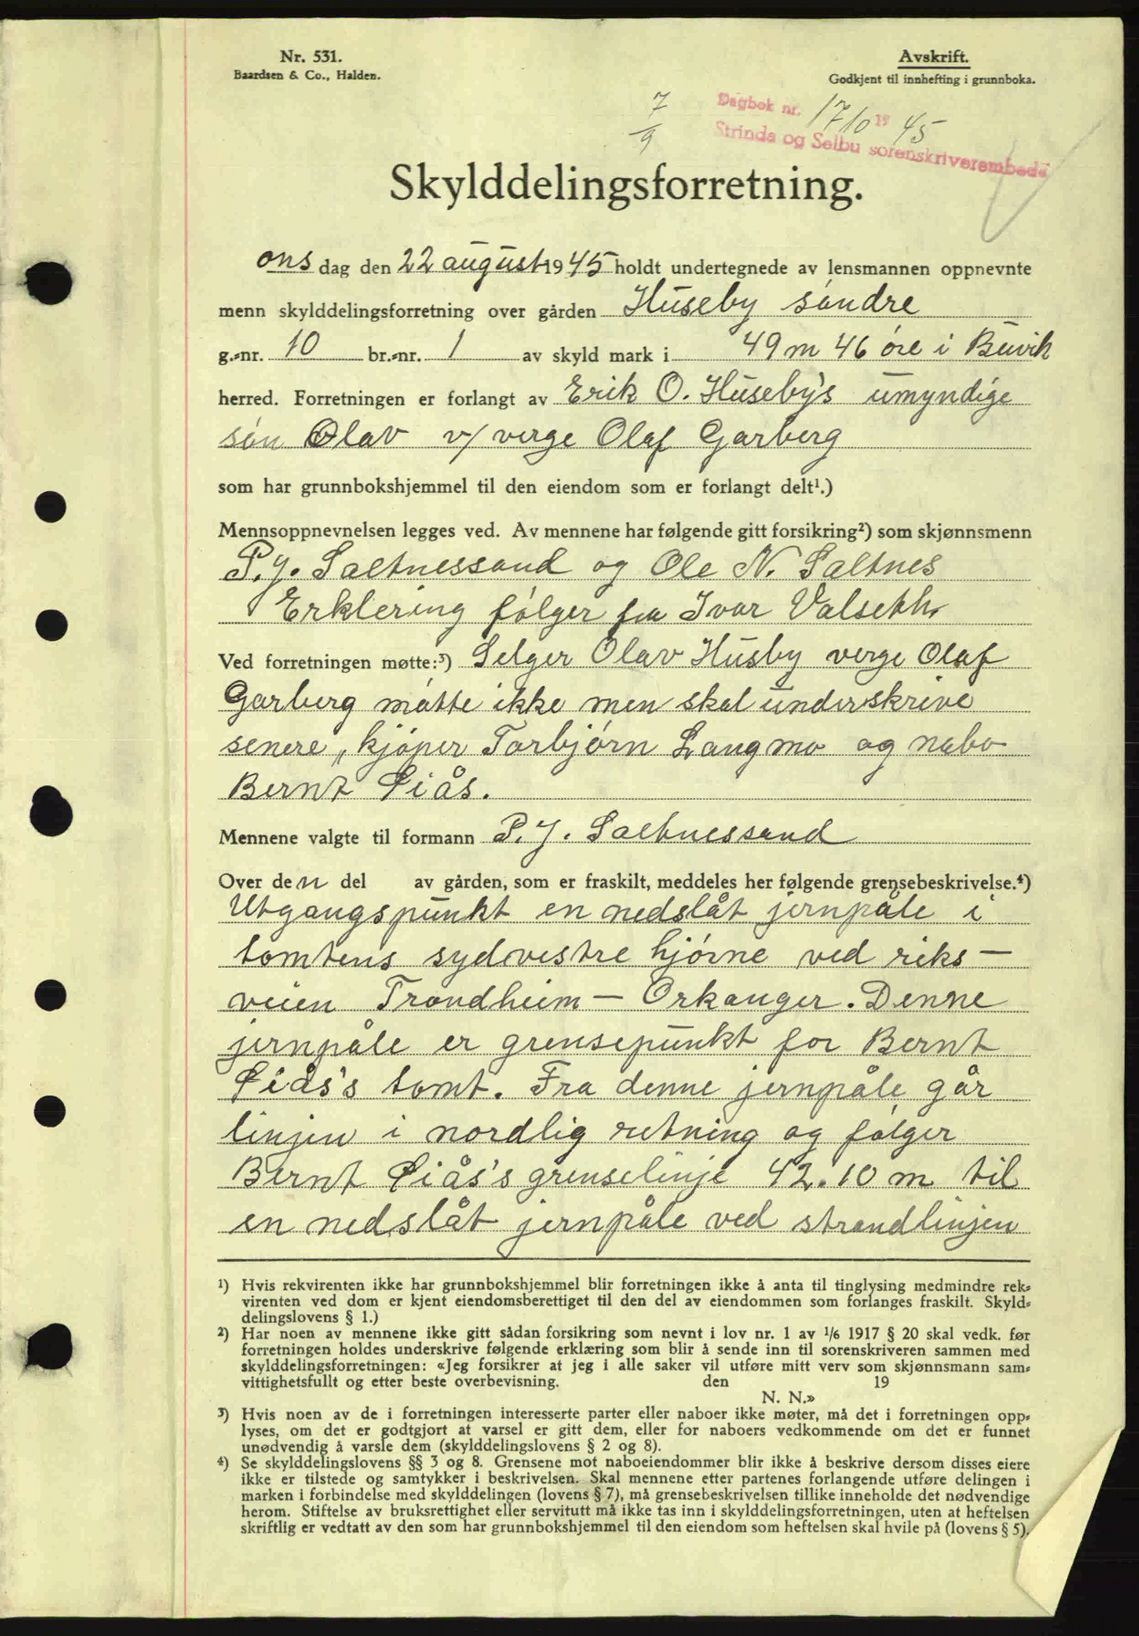 Nr. 531.
Baardsen & Co., Halden.
Avskrift.
Godkjent til innhefting i grunnboka.
7/9
Dagbok nr. 1710 19 45
Strinda og Selbu sorenskriverembede
Skylddelingsforretning.
ons dag den 22 august 1945 holdt undertegnede av lensmannen oppnevnte
menn skylddelingsforretning over gården Huseby søndre
g.-nr. 10 br.-nr. 1 av skyld mark i 49 m 46 øre i Buvik
herred. Forretningen er forlangt av Erik O. Huseby's umyndige
søn Olav v/ verge Olaf Garberg
som har grunnbokshjemmel til den eiendom som er forlangt delt¹.)
Mennsoppnevnelsen legges ved. Av mennene har følgende gitt forsikring²) som skjønnsmenn
P. J. Saltnessand og Ole N. Saltnes
Erklering følger fra Ivar Valseth
Ved forretningen møtte:³) Selger Olav Husby verge Olaf
Garberg møtte ikke men skal underskrive
senere, kjøper Torbjørn Langmo og nabo
Bernt Øiås.
Mennene valgte til formann P. J. Saltnessand
Over den del av gården, som er fraskilt, meddeles her følgende grensebeskrivelse.⁴)
Utgangspunkt en nedslåt jernpåle i
tomtens sydvestre hjørne ved riks-
veien Trondheim - Orkanger. Denne
jernpåle er grensepunkt for Bernt
Øiås's tomt. Fra denne jernpåle går
linjen i nordlig retning og følger
Bernt Øiås's grenselinje 42.10 m til
en nedslåt jernpåle ved strandlinjen
¹) Hvis rekvirenten ikke har grunnbokshjemmel blir forretningen ikke å anta til tinglysing medmindre rek-
virenten ved dom er kjent eiendomsberettiget til den del av eiendommen som forlanges fraskilt. Skyld-
delingslovens § 1.)
²) Har noen av mennene ikke gitt sådan forsikring som nevnt i lov nr. 1 av 1/6 1917 § 20 skal vedk. før
forretningen holdes underskrive følgende erklæring som blir å sende inn til sorenskriveren sammen med
skylddelingsforretningen: «Jeg forsikrer at jeg i alle saker vil utføre mitt verv som skjønnsmann sam-
vittighetsfullt og etter beste overbevisning. den 19
N. N.»
³) Hvis noen av de i forretningen interesserte parter eller naboer ikke møter, må det i forretningen opp-
lyses, om det er godtgjort at varsel er gitt dem, eller for naboers vedkommende om det er funnet
unødvendig å varsle dem (skylddelingslovens § 2 og 8).
⁴) Se skylddelingslovens §§ 3 og 8. Grensene mot naboeiendommer blir ikke å beskrive dersom disses eiere
ikke er tilstede og samtykker i beskrivelsen. Skal mennene etter partenes forlangende utføre delingen i
marken i forbindelse med skylddelingen (lovens § 7), må grensebeskrivelsen tillike inneholde det nødvendige
herom. Stiftelse av bruksrettighet eller servitutt må ikke tas inn i skylddelingsforretningen, uten at heftelsen
skriftlig er vedtatt av den som har grunnbokshjemmel til den eiendom som heftelsen skal hvile på (lovens § 5).